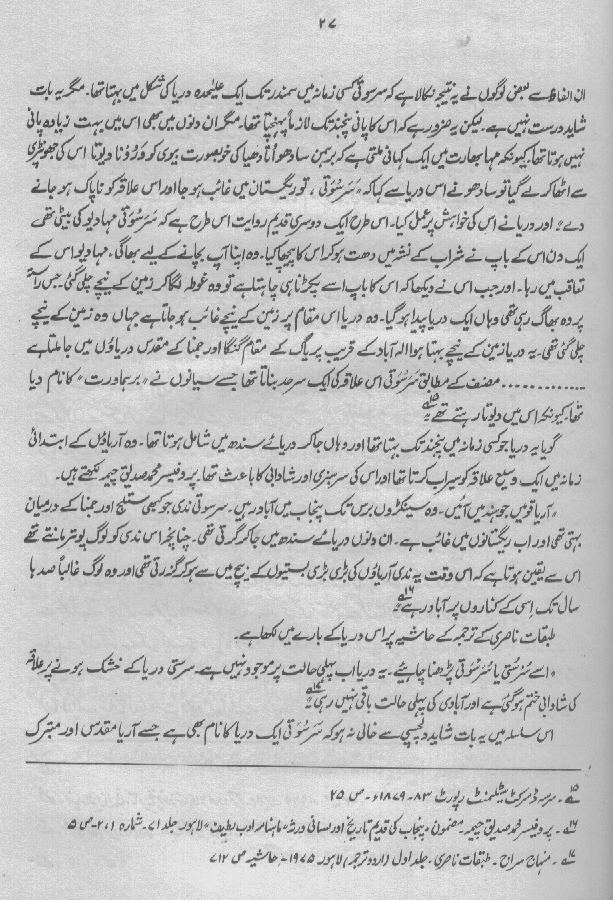 ۲۷
ان الفاظ سے بعض لوگوں نے یہ نتیجہ نکالا ہے کہ سرسوتی کسی زمانہ میں سمندر تک ایک علیٰحدہ دریا کی شکل میں بہتا تھا۔ مگر یہ بات
شاید درست نہیں ہے۔ لیکن یہ ضرور ہے کہ اس کا پانی پنجند تک لازماً پہنچتا تھا۔ مگر ان دنوں میں بھی اس میں بہت زیادہ پانی
نہیں ہوتا تھا۔ کیونکہ مہابھارت میں ایک کہانی ملتی ہے کہ برہمن سادھو اُناڈھیا کی خوبصورت بیوی کو وَرُونا دیوتا اس کی جھونپڑی
سے اٹھا کر لے گیا تو سادھو نے اس دریا سے کہا کہ "سَرَسْوَتی، تو ریگستان میں غائب ہو جا اور اس علاقہ کو ناپاک ہو جانے
دے" اور دریا نے اس کی خواہش پر عمل کیا۔ اس طرح ایک دوسری قدیم روایت اس طرح ہے کہ سَرَسْوَتی مہادیو کی بیٹی تھی
ایک دن اس کے باپ نے شراب کے نشہ میں دھت ہو کر اس کا پیچھا کیا۔ وہ اپنا آپ بچانے کے لیے بھاگی، مہادیو اس کے
تعاقب میں رہا۔ اور جب اس نے دیکھا کہ اس کا باپ اسے پکڑنا ہی چاہتا ہے تو وہ غوطہ لگا کر زمین کے نیچے چلی گئی۔ جس راستے
پر وہ بھاگ رہی تھی وہاں ایک دریا پیدا ہو گیا۔ وہ دریا اس مقام پر زمین کے نیچے غائب ہو جاتا ہے جہاں وہ زمین کے نیچے
چلی گئی تھی۔ یہ دریا زمین کے نیچے بہتا ہوا الہ آباد کے قریب پریاگ کے مقام گنگا اور جمنا کے مقدس دریاؤں میں جا ملتا ہے
............. مصنف کے مطابق سَرَسْوَتی اس علاقہ کی ایک سرحد بناتا تھا جسے سیانوں نے "برہماورت" کا نام دیا
تھا۔ کیونکہ اس میں دیوتا رہتے تھے" ۱۵
گویا یہ دریا جو کسی زمانہ میں پنجند تک بہتا تھا اور وہاں جا کر دریائے سندھ میں شامل ہوتا تھا۔ وہ آریاؤں کے ابتدائی
زمانہ میں ایک وسیع علاقہ کو سیراب کرتا تھا اور اس کی سرسبزی اور شادابی کا باعث تھا۔ پروفیسر محمد صدیق چیمہ لکھتے ہیں۔
"آریا قومیں جو ہند میں آئیں۔ وہ سینکڑوں برس تک پنجاب میں آباد رہیں۔ سرسوتی ندی جو کبھی ستلج اور جمنا کے درمیان
بہتی تھی اور اب ریگستانوں میں غائب ہے۔ ان دنوں دریائے سندھ میں جا کر گرتی تھی۔ چنانچہ اس ندی کو لوگ پوتر مانتے تھے
اس سے یقین ہوتا ہے کہ اس وقت یہ ندی آریاؤں کی بڑی بڑی بستیوں کے بیچ میں سے ہو کر گزرتی تھی اور وہ لوگ غالباً صدہا
سال تک اسی کے کناروں پر آباد رہے" ۱۶
طبقات ناصری کے ترجمہ کے حاشیہ پر اس دریا کے بارے میں لکھا ہے۔
"اسے سُرستی یا سُرسُوتی پڑھنا چاہئیے۔ یہ دریا اب پہلی حالت پر موجود نہیں ہے۔ سرستی دریا کے خشک ہونے پر علاقہ
کی شادابی ختم ہو گئی ہے اور آبادی کی پہلی حالت باقی نہیں رہی" ۱۷
اس سلسلہ میں یہ بات شاید دلچسپی سے خالی نہ ہو کہ سَرَسْوَتی ایک دریا کا نام بھی ہے جسے آریا مقدس اور متبرک
۱۵۔ سرسہ ڈسٹرکٹ سیٹلمنٹ رپورٹ ۸۳-۱۸۷۹ء۔ ص ۲۵
۱۶۔ پروفیسر محمد صدیق چیمہ۔ مضمون "پنجاب کی قدیم تاریخ اور لسانی ورثہ" ماہنامہ ادب لطیف لاہور جلد ۷۱۔ شمارہ ۱، ۲۔ ص ۵
۱۷۔ منہاج سراج۔ طبقات ناصری۔ جلد اول (اردو ترجمہ) لاہور ۱۹۷۵۔ حاشیہ ص ۷۱۲